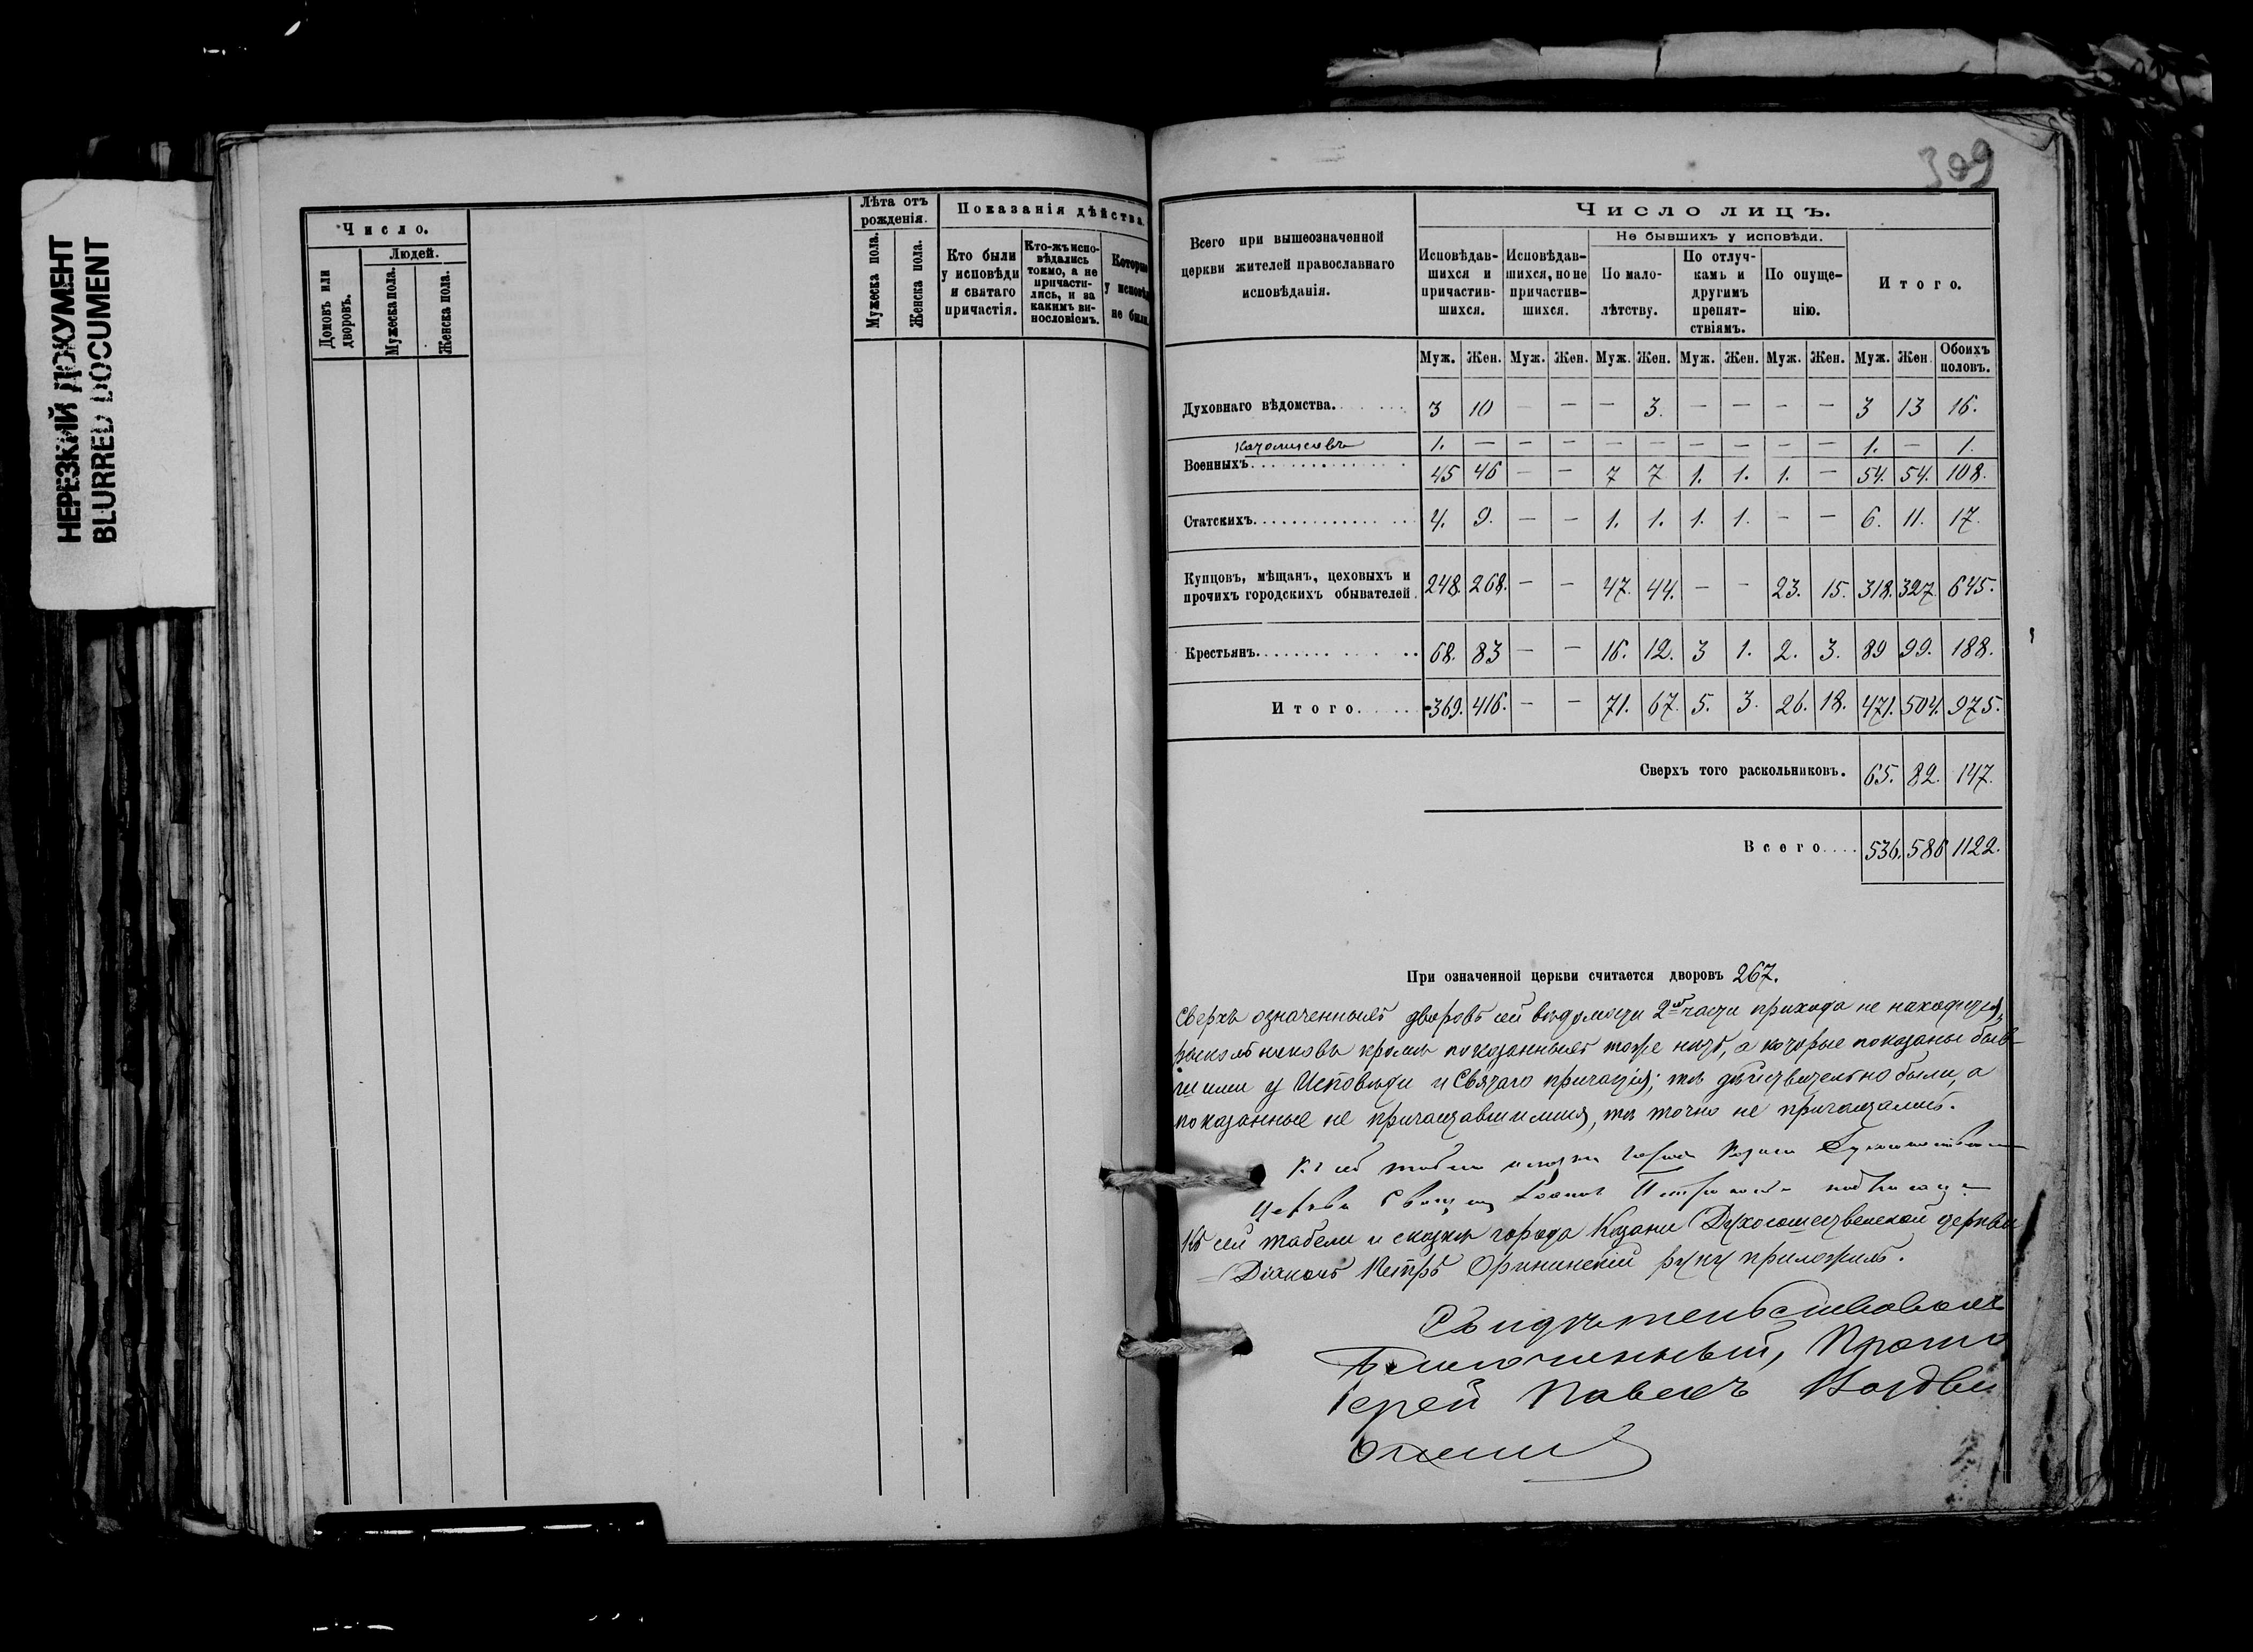 НЕРЕЗКИЙ ДОКУМЕНТ
BLURRED DOCUMENT
Число.
Домовъ или дворовъ.
Людей.
Мужеска пола.
Женска пола.
Лѣта отъ рожденія.
Мужеска пола.
Женска пола.
Показанія дѣйства.
Кто были у исповѣди и святаго причастія.
Кто-жъ исповѣдались токмо, а не причастились, и за какимъ винословіемъ.
у исповѣ
не были.
399
Всего при вышеозначенной
церкви жителей православнаго
исповѣданія.
Число лицъ.
Исповѣдавшихся и причастившихся.
Исповѣдавшихся, но не причастившихся.
Не бывшихъ у исповѣди.
По малолѣтству.
По отлучкамъ и другимъ препятствіямъ.
По опущенію.
Итого.
Муж. Жен. Муж. Жен. Муж. Жен. Муж. Жен. Муж. Жен. Муж. Жен. Обоихъ половъ.
Духовнаго вѣдомства. 3 10 — — — 3. — — — — 3 13 16.
1. — — — — — — — — — 1. — 1.
Военныхъ 45 46 — — 7 7 1. 1. 1. — 54. 54. 108.
Статскихъ 4. 9. — — 1. 1. 1. 1. — — 6. 11. 17.
Купцовъ, мѣщанъ, цеховыхъ и
прочихъ городскихъ обывателей. 248. 268. — — 47. 44. — — 23. 15. 318. 327. 645.
Крестьянъ 68. 83 — — 16. 12. 3 1. 2. 3. 89 99. 188.
Итого 369. 416. — — 71. 67. 5. 3. 26. 18. 471. 504. 975.
Сверхъ того раскольниковъ. 65. 82. 147.
Всего 536. 586 1122.
При означенной церкви считается дворовъ 267.
Сверхъ означенныхъ дворовъ сей вѣдомости 2ой части прихода не находится,
раскольниковъ кромѣ показанныхъ тоже нѣтъ, а которые показаны быв-
шими у Исповѣди и Святаго причастія; тѣ дѣйствительно были, а
показанные не причащавшимися, тѣ точно не причащались.
Къ сей города Казани
Церкви Іоаннъ
Къ сей табели и сказкѣ города Казани Духосошественской церкви
Діаконъ Петръ руку приложилъ.
Свидѣтельствовалъ
Благочинный, Прото
іерей Павелъ